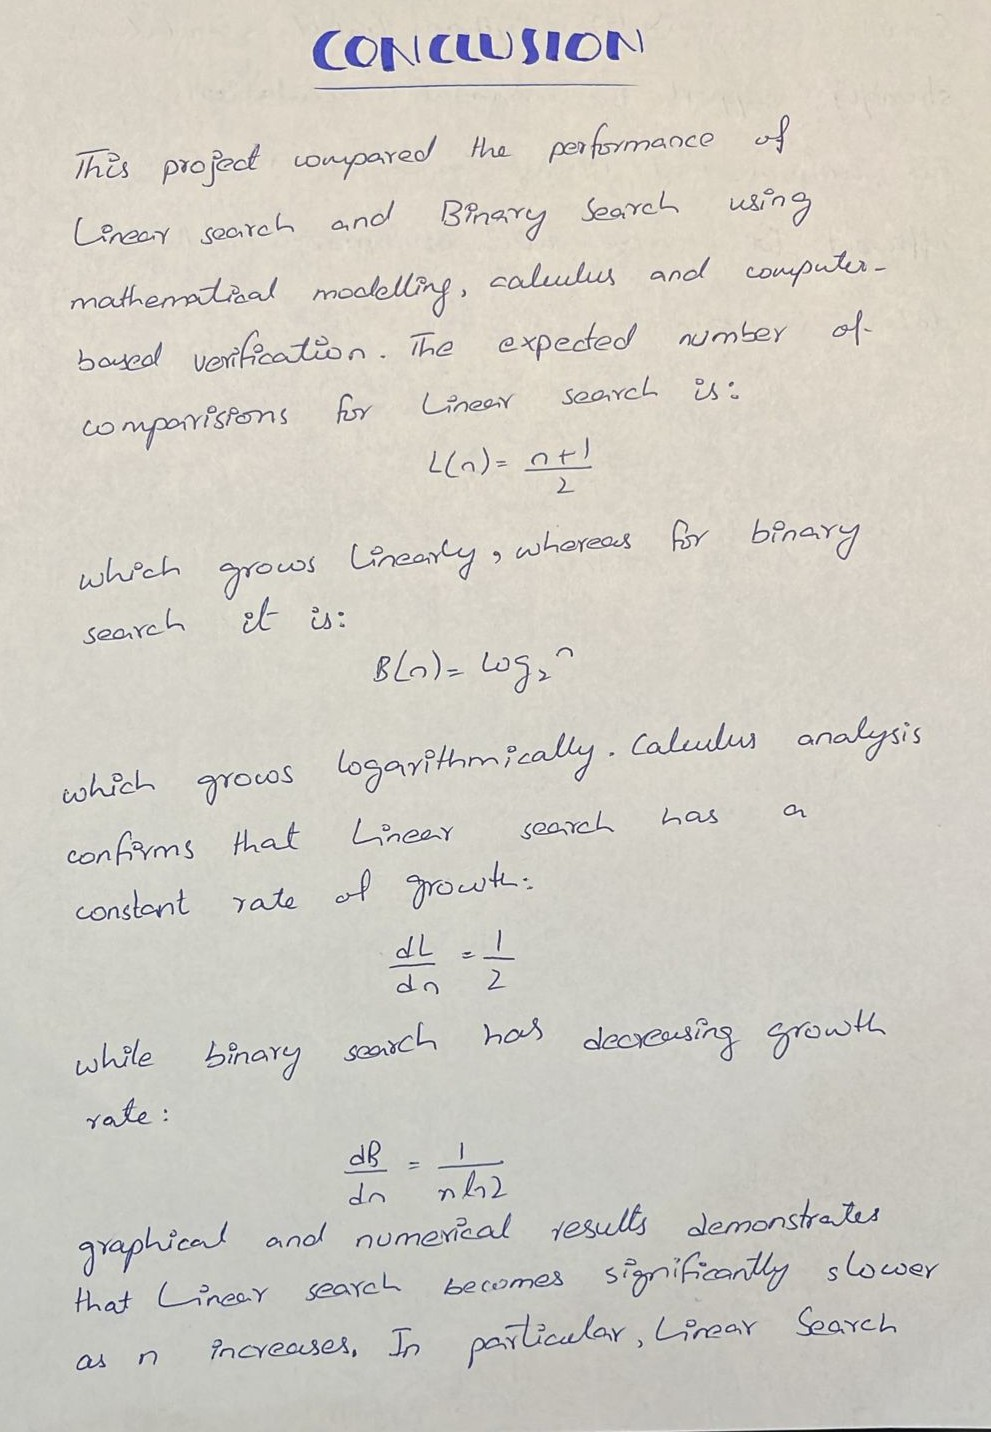 CONCLUSION
This project compared the performance of
Linear search and Binary Search using
mathematical modelling, calculus and computer-
based verification. The expected number of
comparisions for Linear search is:
L(n) = n+1/2
which grows linearly, whereas for binary
search it is:
B(n) = log₂n
which grows logarithmically. Calculus analysis
confirms that Linear search has a
constant rate of growth:
dL/dn = 1/2
while binary search has decreasing growth
rate:
dB/dn = 1/n ln2
graphical and numerical results demonstrates
that Linear search becomes significantly slower
as n increases. In particular, Linear Search